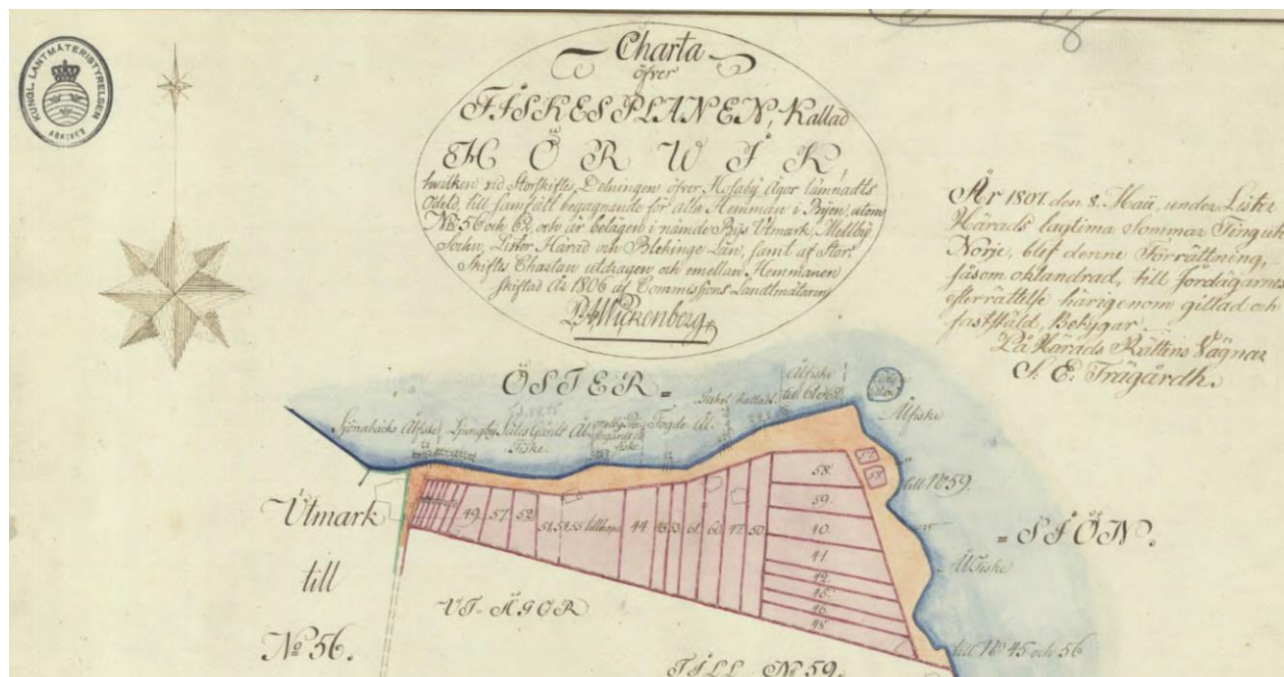 KUNGL. LANTMÄTERISTYRELSEN
ARKIVET
Charta
öfver
FISKESPLANEN, Kallad
HÖRWIK,
hwilken vid Storskiftes Delningen öfver Hosaby Ägor lämnadts
Odeld, till samfält begagnande för alla Hemman i Byen, utom
No 56 och 62, och är belägen i nämde Bys Utmark, Mellby
Sochn, Lister Härad och Blekinge Län, samt af Stor-
skiftes Chartan utdragen och emellan Hemmanen
skiftad År 1806 af Commissions Landtmätaren
Wickenberg
År 1807 den 8. Maii, under Lister
Härads lagtima Sommar Ting uti
Norje, blef denne Förrättning,
såsom oklandrad, till Jordägarnes
efterrättelse härigenom gillad och
fastställd, Betygar
På Härads Rättens Vägnar
S. E. Trägårdh.
ÖSTER =
Ålfiske
till 61 o 62
Sjönabäcks Ålfiske
Ljungby Säles Gärdt Ål
Fiske
Fogde Ål
kallad
Ålfiske
57.
58.
till No 59.
= SJÖN.
Ålfiske
till No 45 och 56
Utmark
till
No 56.
49.
57.
52.
tillhopa
44.
53.
61.
62.
47.
50.
58.
59.
40.
41.
42.
45.
46.
48.
UT-ÄGOR
TILL No 59.